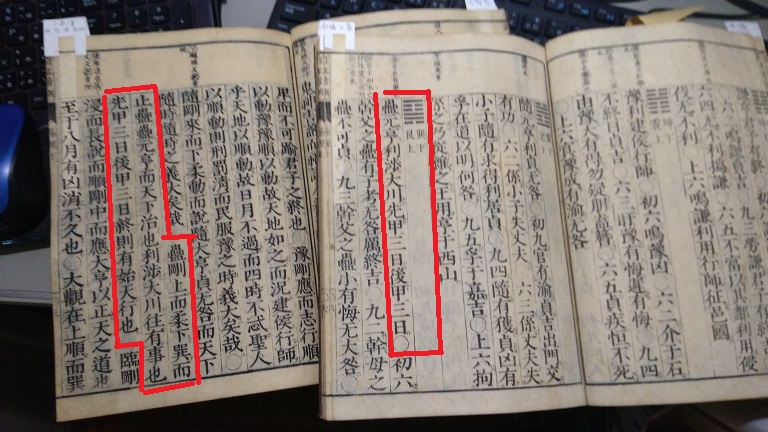 六四无不利撝謙○六五不富以其鄰利用侵
伐无不利○上六鳴謙利用行師征邑國
坤下
震上
豫利建侯行師○初六鳴豫凶○六二介于石
不終日貞吉○六三盱豫悔遲有悔○九四
由豫大有得勿疑朋盍簪○六五貞疾恒不死
○上六冥豫成有渝无咎
隨元亨利貞无咎○初九官有渝貞吉出門交
有功○六二係小子失丈夫○六三係丈夫失
小子隨有求得利居貞○九四隨有獲貞凶有
孚在道以明何咎○九五孚于嘉吉○上六拘
係之乃從維之王用亨于西山
巽下
艮上
蠱元亨利涉大川先甲三日後甲三日○初六
幹父之蠱有子考无咎厲終吉○九二幹母之
蠱不可貞○九三幹父之蠱小有悔无大咎○
卑而不可踰君子之終也○豫剛應而志行順
以動豫豫順以動故天地如之而況建侯行師
乎天地以順動故日月不過而四時不忒聖人
以順動則刑罰清而民服豫之時義大矣哉○
隨剛來而下柔動而說隨大亨貞无咎而天下
隨時隨時之義大矣哉○蠱剛上而柔下巽而
止蠱蠱元亨而天下治也利涉大川往有事也
先甲三日後甲三日終則有始天行也○臨剛
浸而長說而順剛中而應大亨以正天之道也
至于八月有凶消不久也○大觀在上順而巽